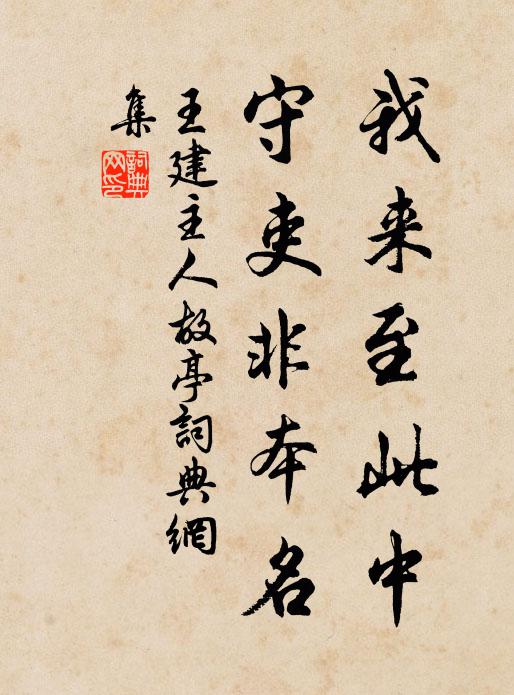 我来至此中
守吏非本名
王建主人故亭詞典網
集
詞典網印